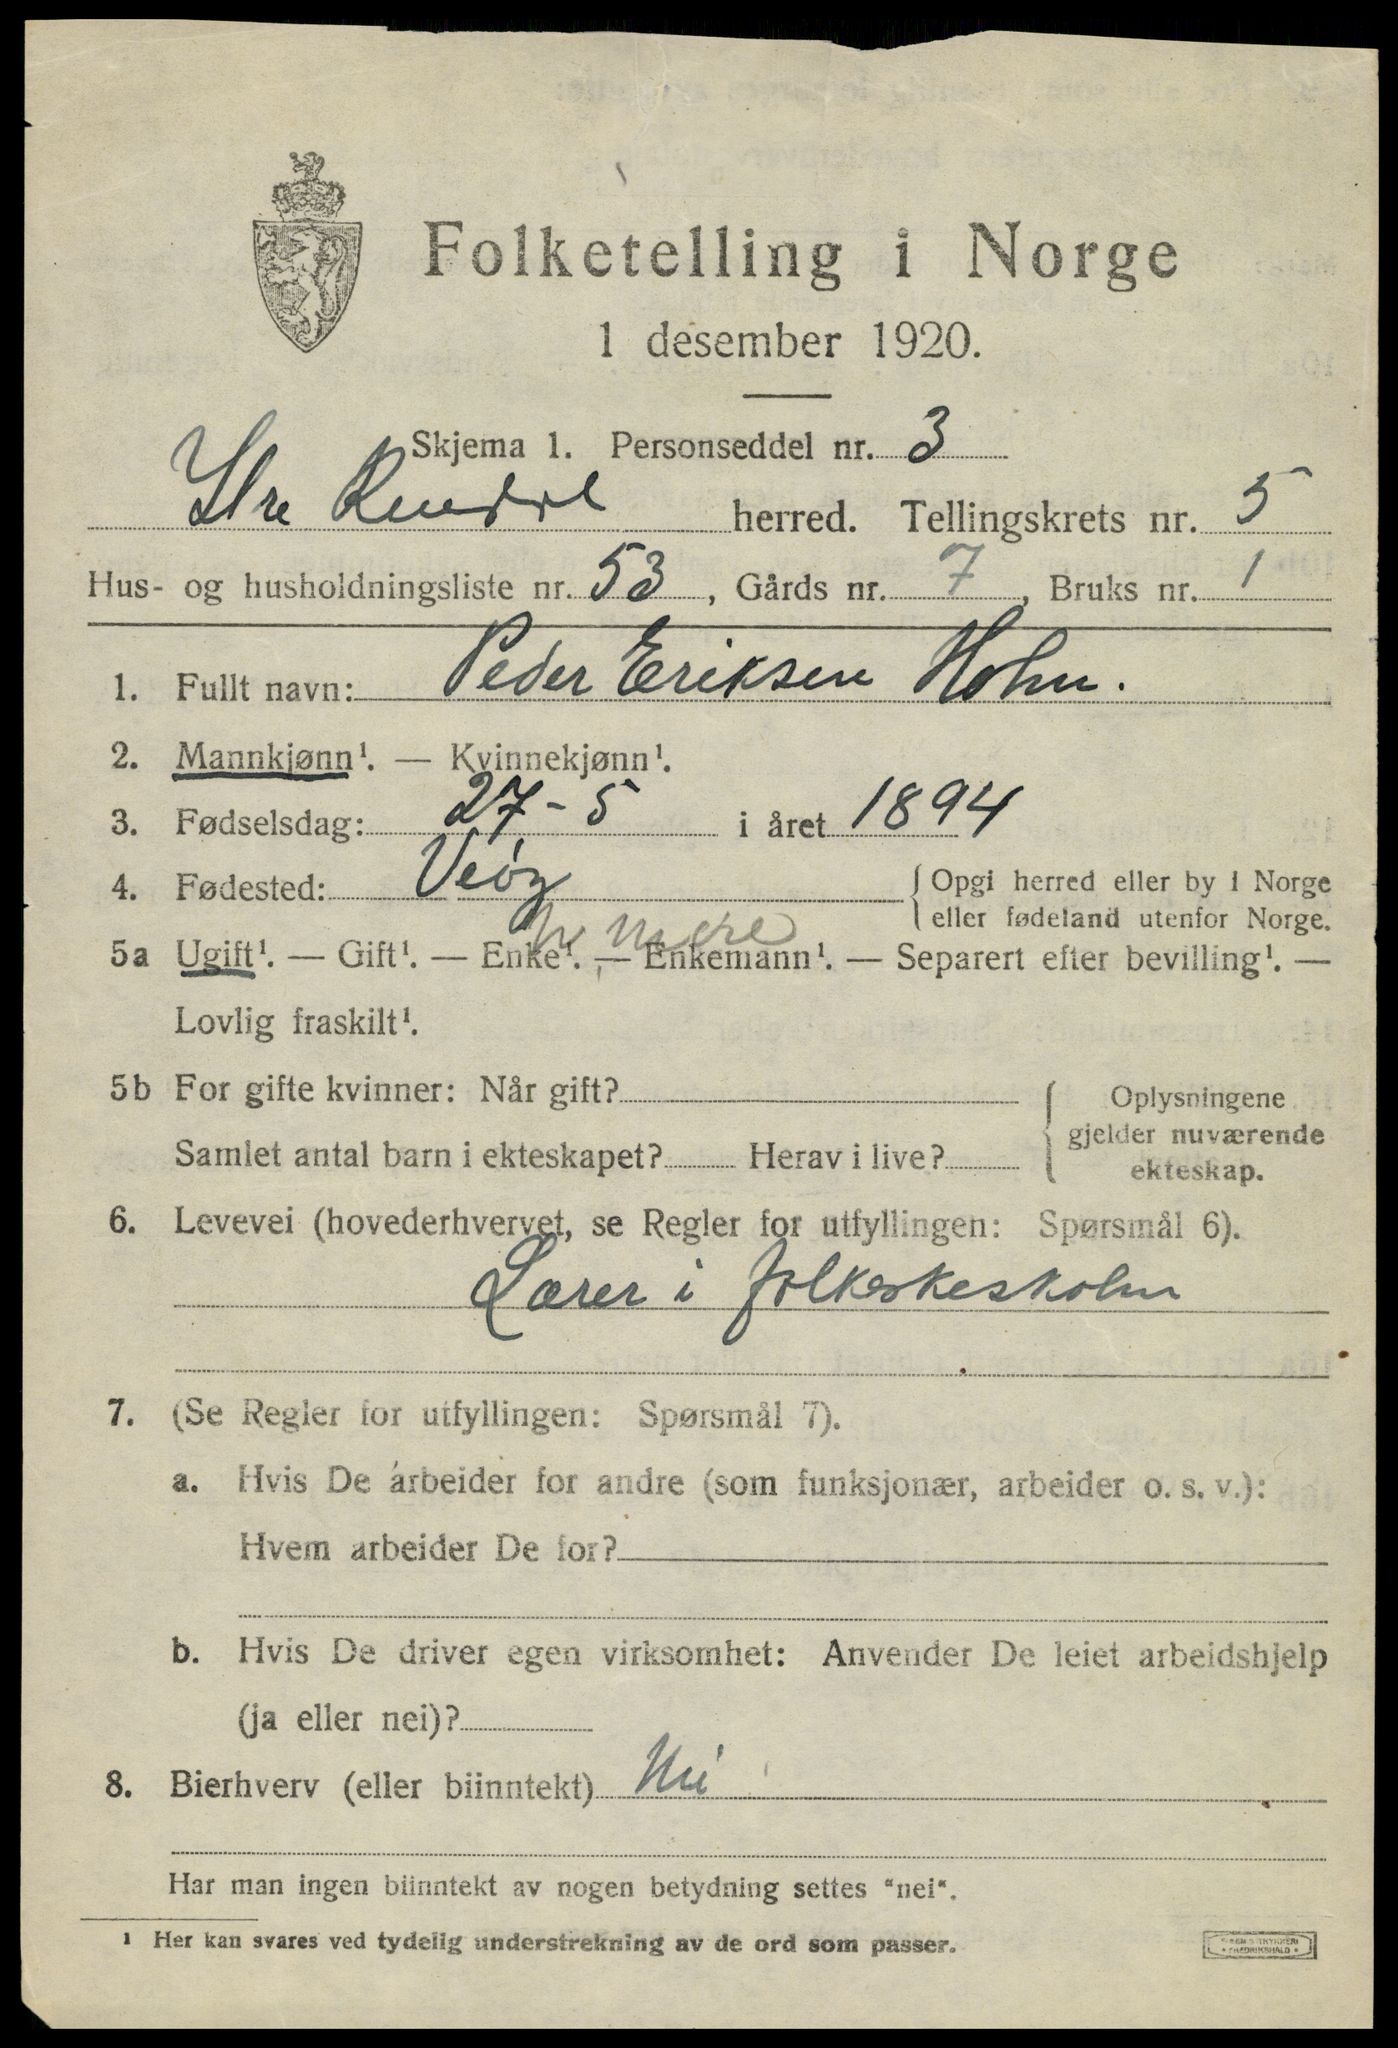 Folketelling i Norge
1 desember 1920.
Skjema 1. Personseddel nr. 3
Ytre Rendal herred. Tellingskrets nr. 5
Hus- og husholdningsliste nr. 53, Gårds nr. 7, Bruks nr. 1
1. Fullt navn: Peder Eriksen Holm.
2. Mannkjønn¹. — Kvinnekjønn¹.
3. Fødselsdag: 27-5 i året 1894
4. Fødested: Veøy { Opgi herred eller by i Norge
eller fødeland utenfor Norge.
møre
5a Ugift¹. — Gift¹. — Enke¹. — Enkemann¹. — Separert efter bevilling¹. —
Lovlig fraskilt¹.
5b For gifte kvinner: Når gift? { Oplysningene
gjelder nuværende
Samlet antal barn i ekteskapet? Herav i live? ekteskap.
6. Levevei (hovederhvervet, se Regler for utfyllingen: Spørsmål 6).
Lærer i folkeskeskolen
7. (Se Regler for utfyllingen: Spørsmål 7).
a. Hvis De arbeider for andre (som funksjonær, arbeider o. s. v.):
Hvem arbeider De for?
b. Hvis De driver egen virksomhet: Anvender De leiet arbeidshjelp
(ja eller nei)?
8. Bierhverv (eller biinntekt) Nei
Har man ingen biinntekt av nogen betydning settes "nei".
¹ Her kan svares ved tydelig understrekning av de ord som passer.